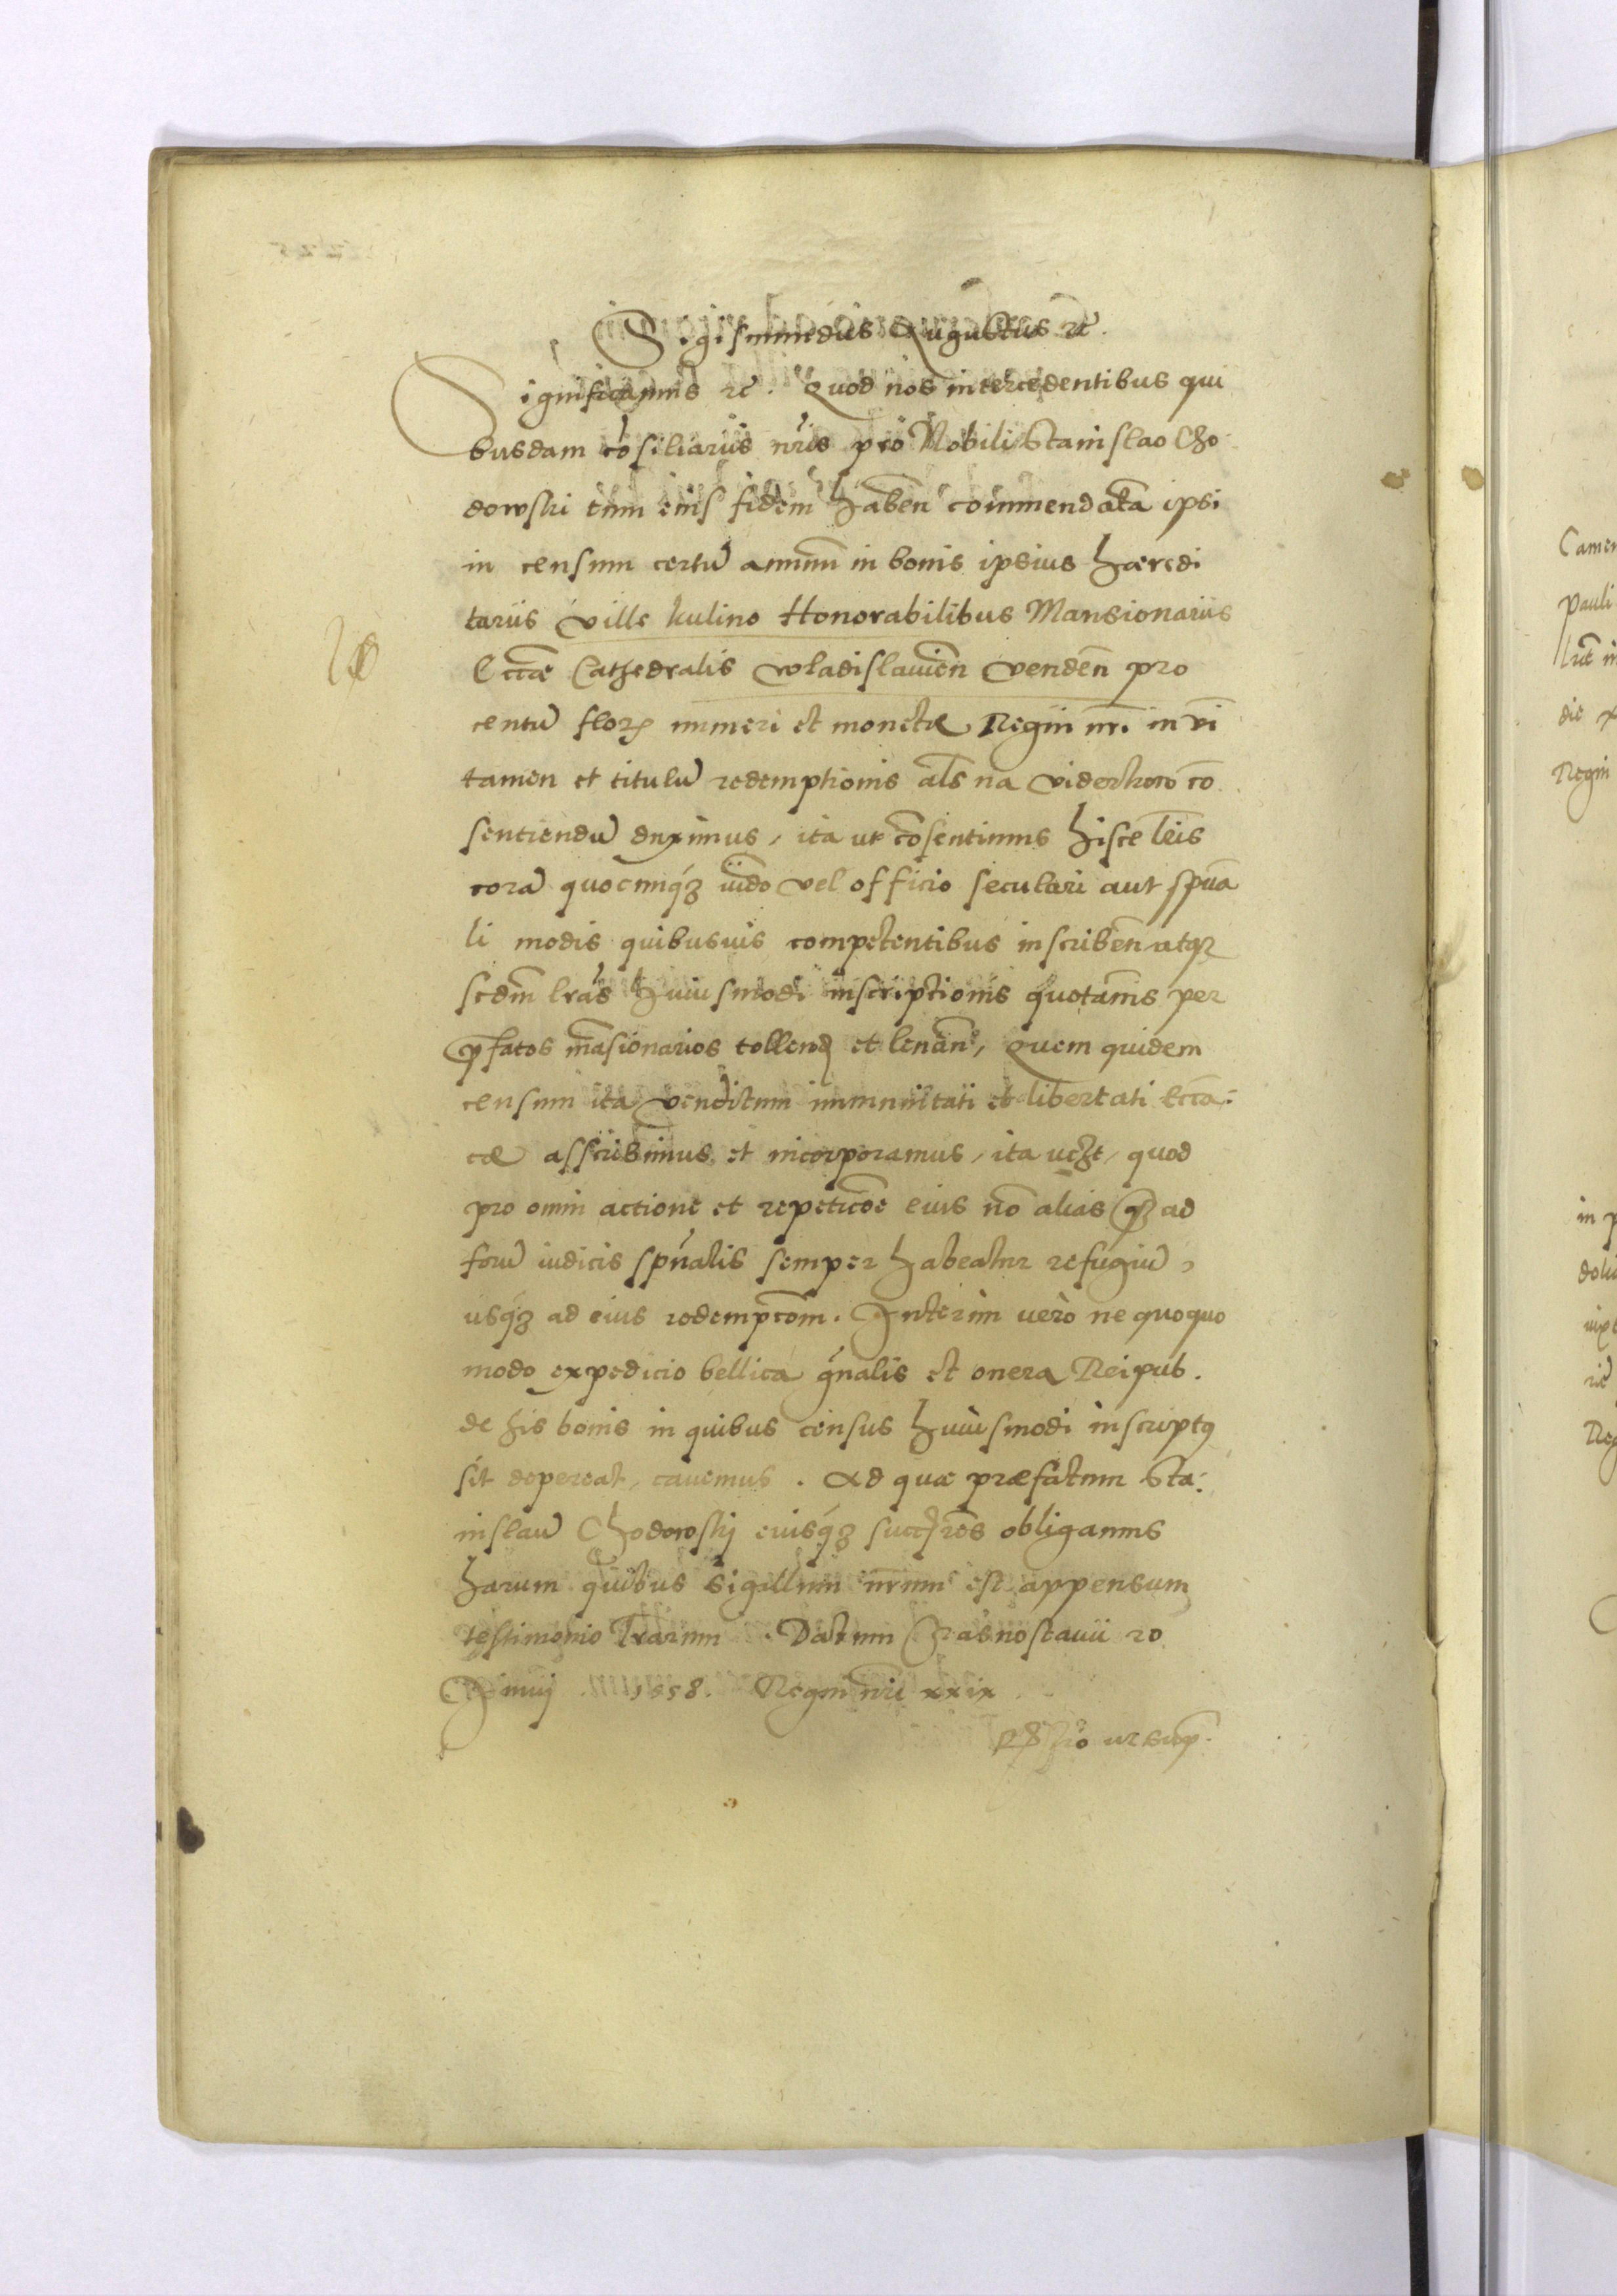 Sigismundus Augustus etc.
Significamus etc. Quod nos intercedentibus qui
busdam cõsiliariis nris pro Nobili Stanislao Cho
dowski tum eius fidem haben commendatã ipsi
in censum certũ annuũ in bonis ipsius hæredi
tariis ville Kulino Honorabilibus Mansionariis
Eccæ Cathedralis Wladislavieñ vendeñ pro
centũ flor numeri et monetæ Regni nri in vi
tamen et titulũ redemptionis als na viderkow cõ
sentiendũ duximus, ita ut cõsentimus hisce lris
corã quocunq3 iudõ vel officio seculari aut spũa
li modis quibusvis competentibus inscribeñ atq3
scdm lras huiusmodi inscriptionis quotannis per
pfatos mãsionarios tollend et levan, Quem quidem
censum ita venditum immunitati et libertati Eccã:
cæ asscribimus et incorporamus, ita vczt, quod
pro omni actione et repeticõe eius nõ alias q3 ad
forũ iudicis spũalis semper habeatur refugiũ,
usq3 ad eius redempcõm. Interim verò ne quoquo
modo expedicio bellica gñalis et onera Reipub.
de his bonis in quibus census huiusmodi inscriptus
sit depereat, cavemus. Ad quæ præfatum Sta:
nislaũ Chodowskj eiusq3 succres obligamus
harum quibus sigillum nrum est appensum
testimonio lrarum. Datum Crasnostavii 20
Junij 1558. Regni nri xxix
Rño ut sup.
Camen
Pauli
die x
Regni
in p